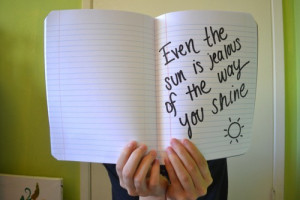 Even the
sun is jealous
of the way
you shine